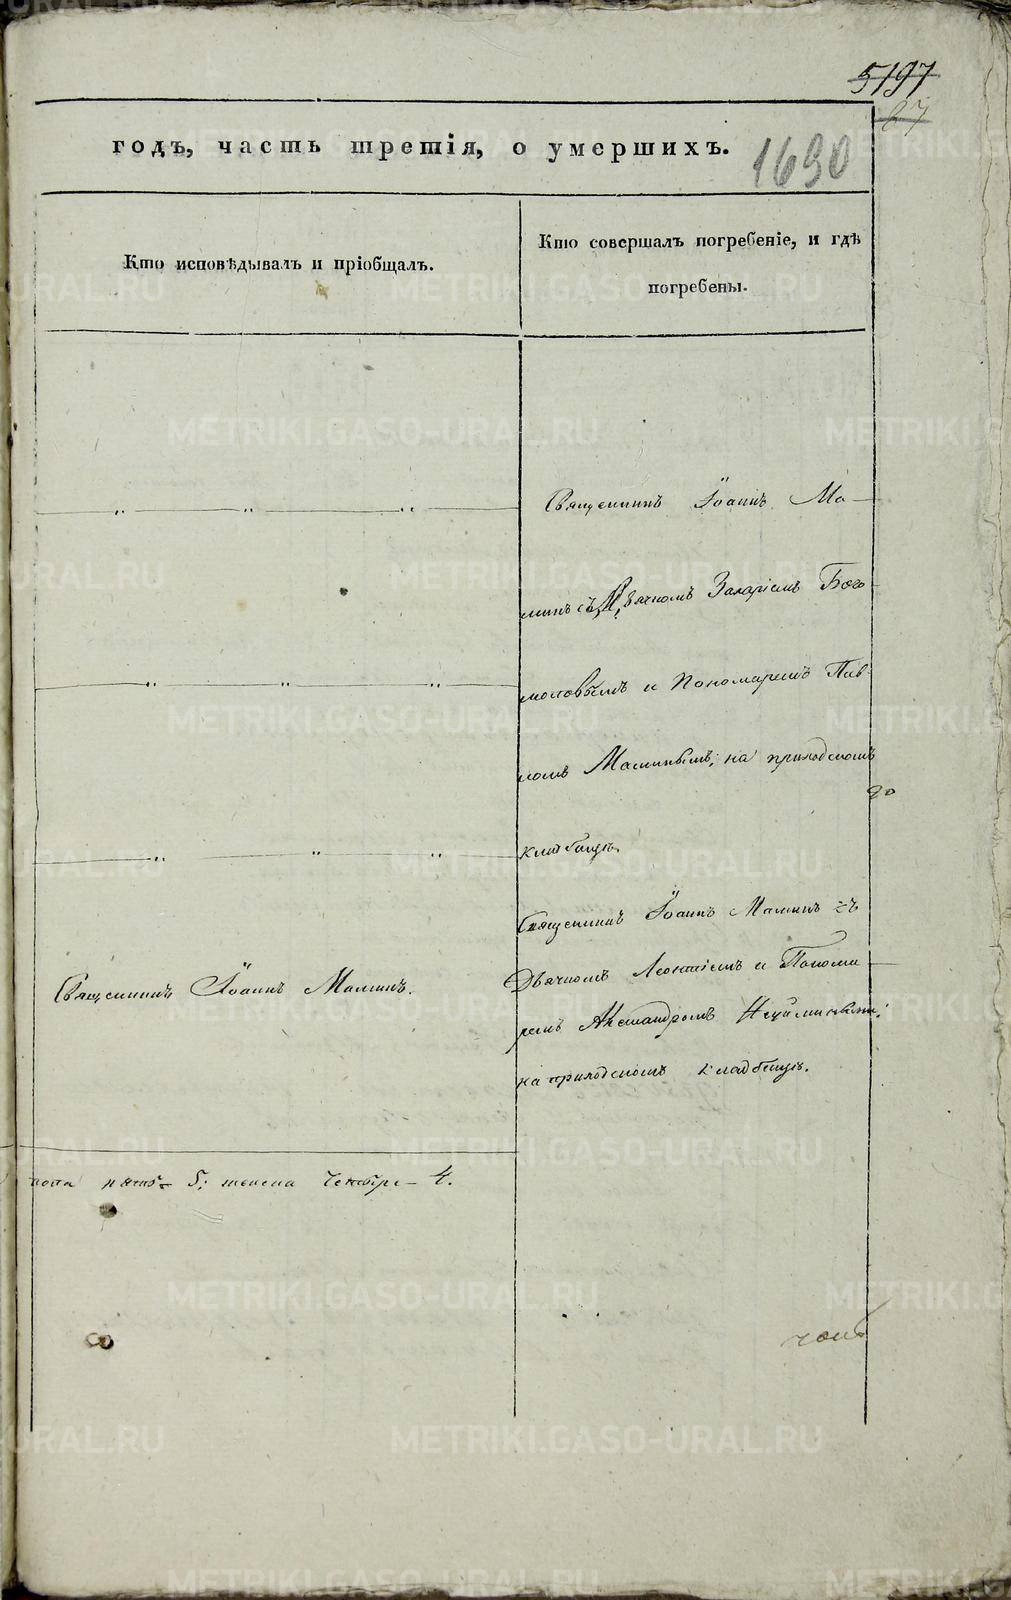 5197
27
годъ, часть третія, о умершихъ.
1690
Кто исповѣдывалъ и пріобщалъ.
Кто совершалъ погребеніе, и гдѣ
погребены.
Священникъ Іоаннъ Ма-
минъ съ Дьячкомъ Захаріемъ Бого
моловымъ и Пономаремъ Пав-
ломъ Маминымъ, на приходскомъ
кладбищѣ.
Священникъ Іоаннъ Маминъ съ
Дьячкомъ Леонтіемъ и Понома
ремъ Александромъ
на приходскомъ кладбищѣ.
Священникъ Іоаннъ Маминъ.
пола 5; женска четыре – 4.
METRIKI.GASO-URAL.RU